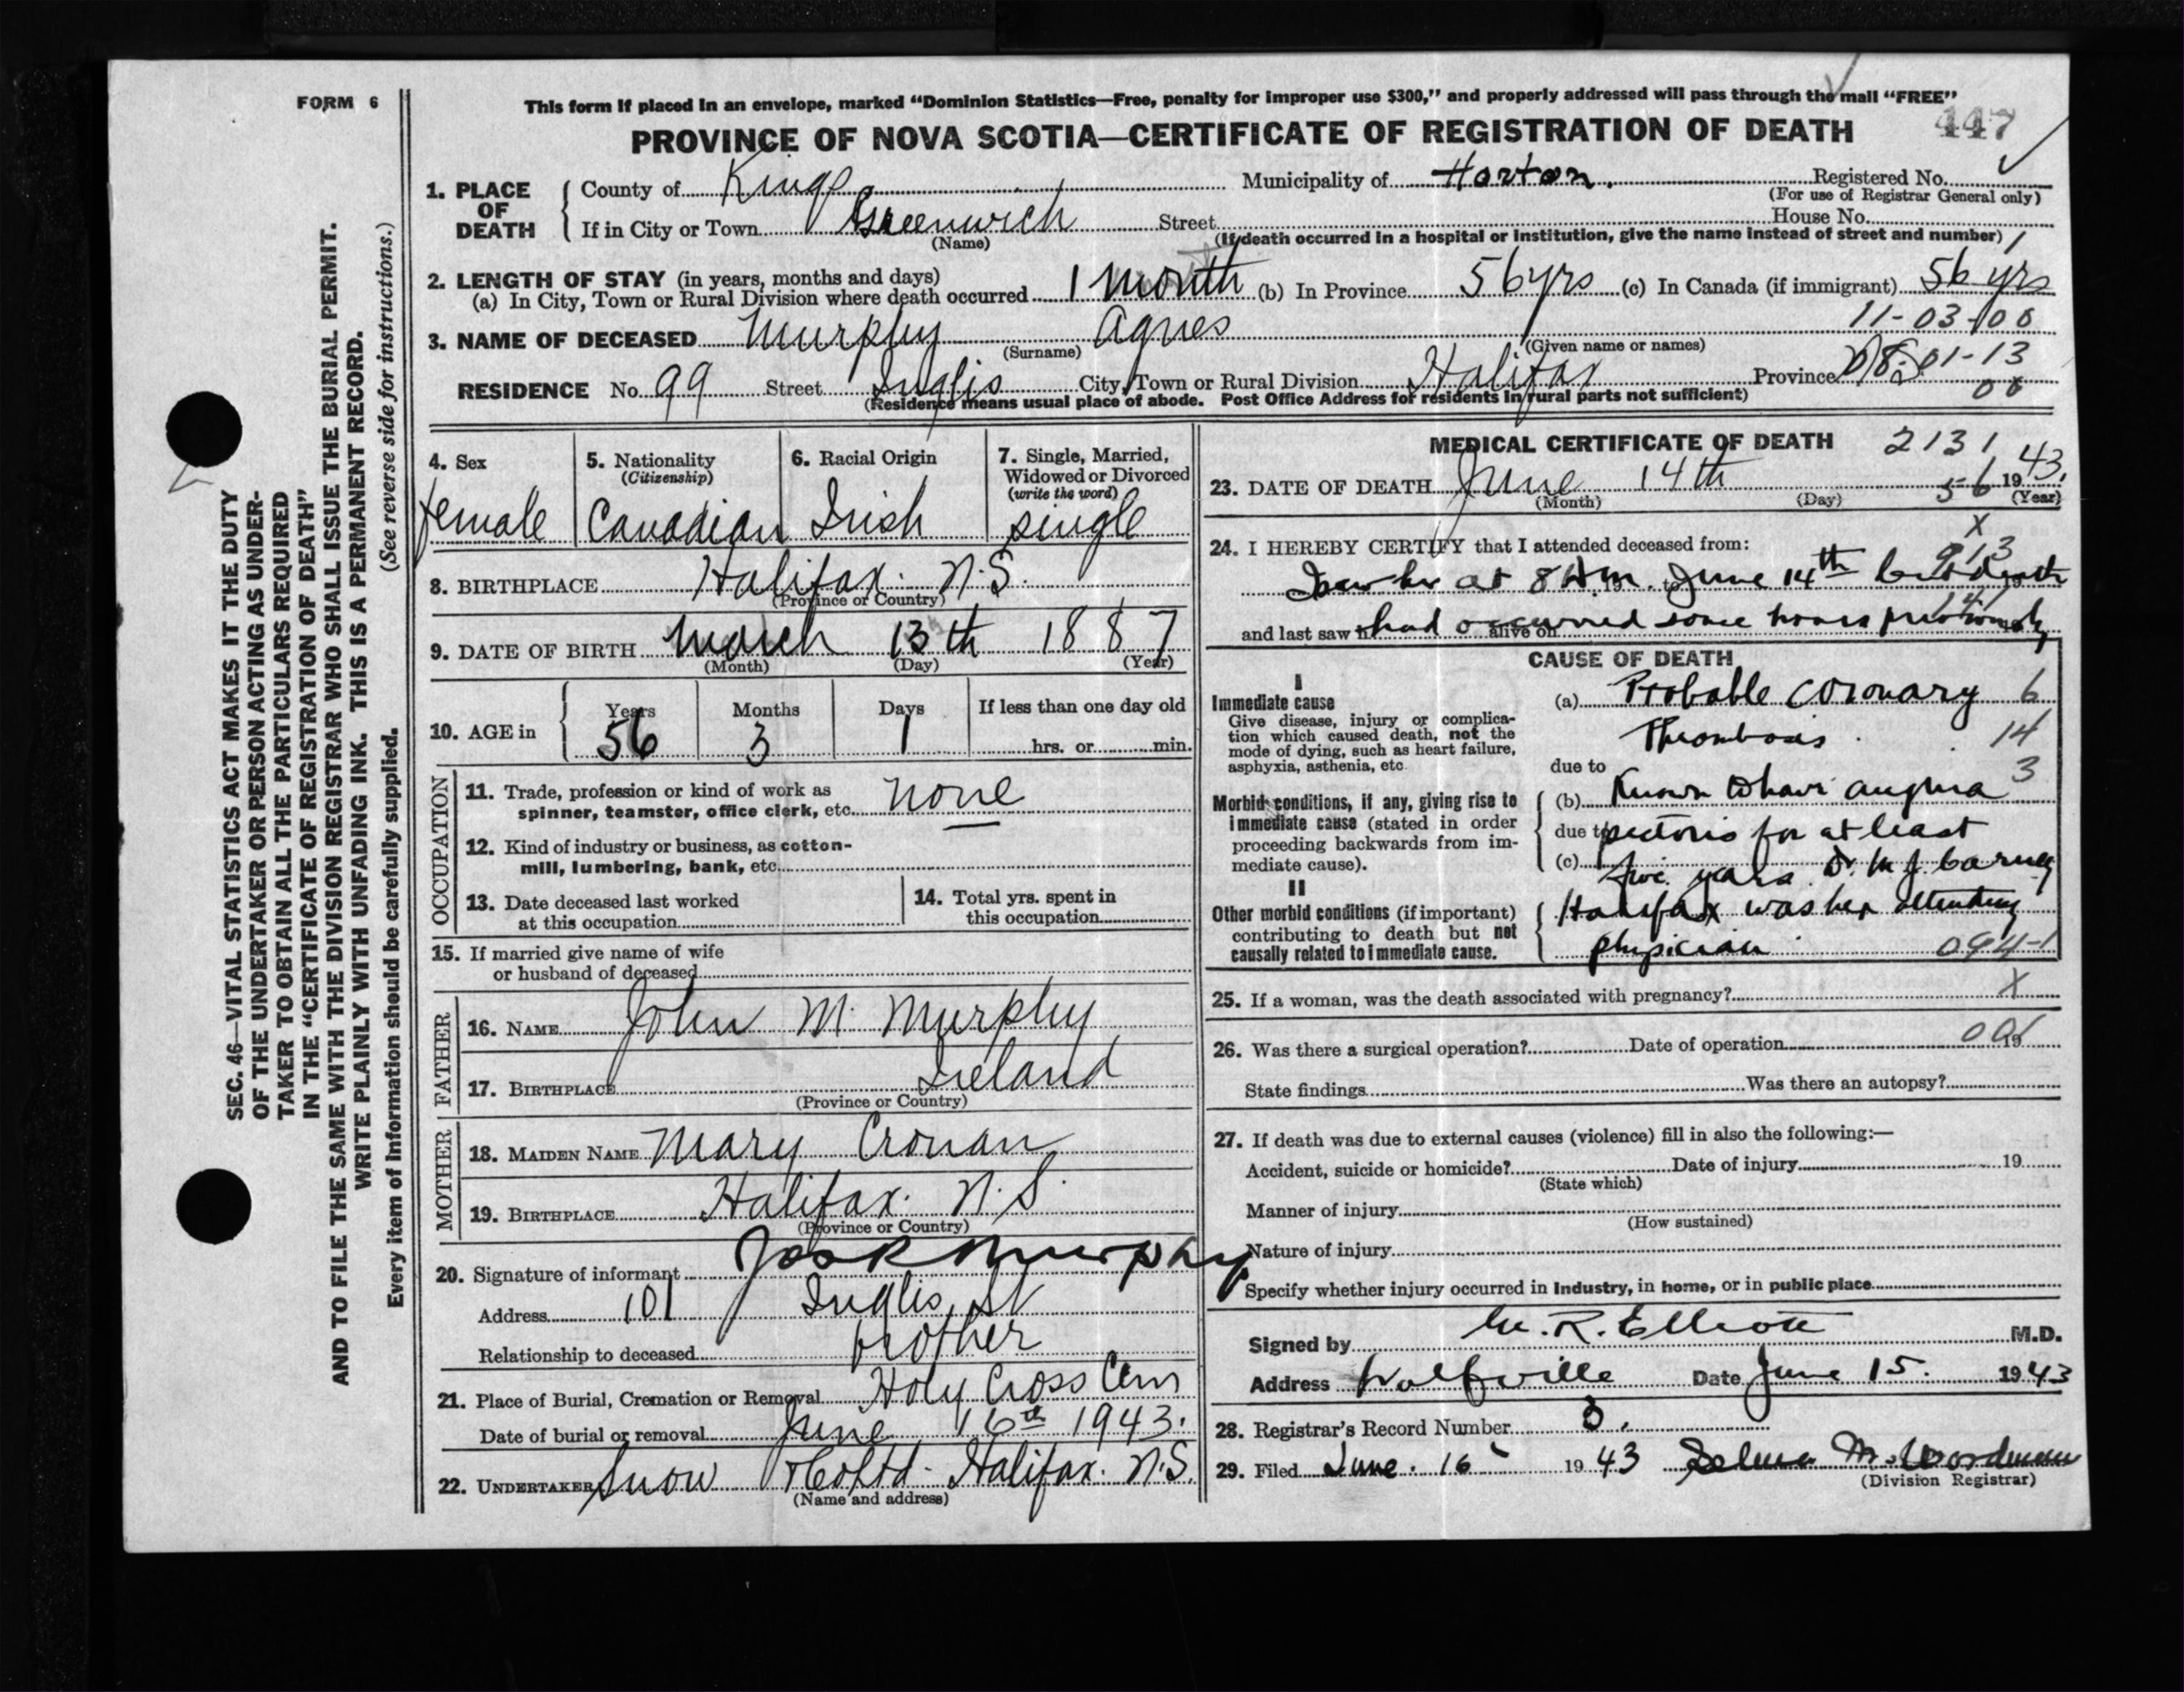 FORM 6
This form if placed in an envelope, marked “Dominion Statistics—Free, penalty for improper use $300,” and properly addressed will pass through the mail “FREE”
PROVINCE OF NOVA SCOTIA—CERTIFICATE OF REGISTRATION OF DEATH
447
1. PLACE OF DEATH
County of Kings Municipality of Horton. Registered No.
(For use of Registrar General only)
If in City or Town Greenwich Street House No.
(Name) (If death occurred in a hospital or institution, give the name instead of street and number)
2. LENGTH OF STAY (in years, months and days)
(a) In City, Town or Rural Division where death occurred 1 month (b) In Province 56 yrs (c) In Canada (if immigrant) 56 yrs
11-03-00
3. NAME OF DECEASED Murphy Agnes
(Surname) (Given name or names)
RESIDENCE No. 99 Street Inglis City, Town or Rural Division Halifax Province N.S. 01-13
(Residence means usual place of abode. Post Office Address for residents in rural parts not sufficient) 00
4. Sex
female
5. Nationality
(Citizenship)
Canadian
6. Racial Origin
Irish
7. Single, Married,
Widowed or Divorced
(write the word)
single
8. BIRTHPLACE Halifax. N.S.
(Province or Country)
9. DATE OF BIRTH March 13th 1887
(Month) (Day) (Year)
10. AGE in
Years Months Days If less than one day old
56 3 1 hrs. or min.
OCCUPATION
11. Trade, profession or kind of work as
spinner, teamster, office clerk, etc. none
12. Kind of industry or business, as cotton-
mill, lumbering, bank, etc.
13. Date deceased last worked
at this occupation
14. Total yrs. spent in
this occupation
15. If married give name of wife
or husband of deceased
FATHER
16. NAME John M. Murphy
17. BIRTHPLACE Ireland
(Province or Country)
MOTHER
18. MAIDEN NAME Mary Cronan
19. BIRTHPLACE Halifax. N.S.
(Province or Country)
20. Signature of informant Jack Murphy
Address 101 Inglis St
Relationship to deceased brother
21. Place of Burial, Cremation or Removal Holy Cross Cem
Date of burial or removal June 16th 1943.
22. UNDERTAKER Snow & Co Ltd. Halifax. N.S.
(Name and address)
MEDICAL CERTIFICATE OF DEATH 2131
23. DATE OF DEATH June 14th 56 1943.
(Month) (Day) (Year)
24. I HEREBY CERTIFY that I attended deceased from:
X
913
Saw her at 8 A.m. to June 14th but death
and last saw h alive on
had occurred some hours previously
CAUSE OF DEATH
I
Immediate cause
Give disease, injury or complica-
tion which caused death, not the
mode of dying, such as heart failure,
asphyxia, asthenia, etc.
(a) Probable coronary 6
Thrombosis. 14
due to
Morbid conditions, if any, giving rise to
immediate cause (stated in order
proceeding backwards from im-
mediate cause).
(b) Known to have angina 3
due to pectoris for at least
(c) five years. Dr. M J Carney
II
Other morbid conditions (if important)
contributing to death but not
causally related to immediate cause.
Halifax was her attending
physician. 094-1
25. If a woman, was the death associated with pregnancy? X
26. Was there a surgical operation? Date of operation 19
State findings Was there an autopsy?
27. If death was due to external causes (violence) fill in also the following:—
Accident, suicide or homicide? Date of injury 19
(State which)
Manner of injury
(How sustained)
Nature of injury
Specify whether injury occurred in industry, in home, or in public place
Signed by R. Elliott M.D.
Address Wolfville Date June 15. 1943
28. Registrar's Record Number 3.
29. Filed June. 16 1943 Selma M. Woodman
(Division Registrar)
SEC. 46—VITAL STATISTICS ACT MAKES IT THE DUTY
OF THE UNDERTAKER OR PERSON ACTING AS UNDER-
TAKER TO OBTAIN ALL THE PARTICULARS REQUIRED
IN THE “CERTIFICATE OF REGISTRATION OF DEATH”
AND TO FILE THE SAME WITH THE DIVISION REGISTRAR WHO SHALL ISSUE THE BURIAL PERMIT.
WRITE PLAINLY WITH UNFADING INK. THIS IS A PERMANENT RECORD.
Every item of information should be carefully supplied. (See reverse side for instructions.)